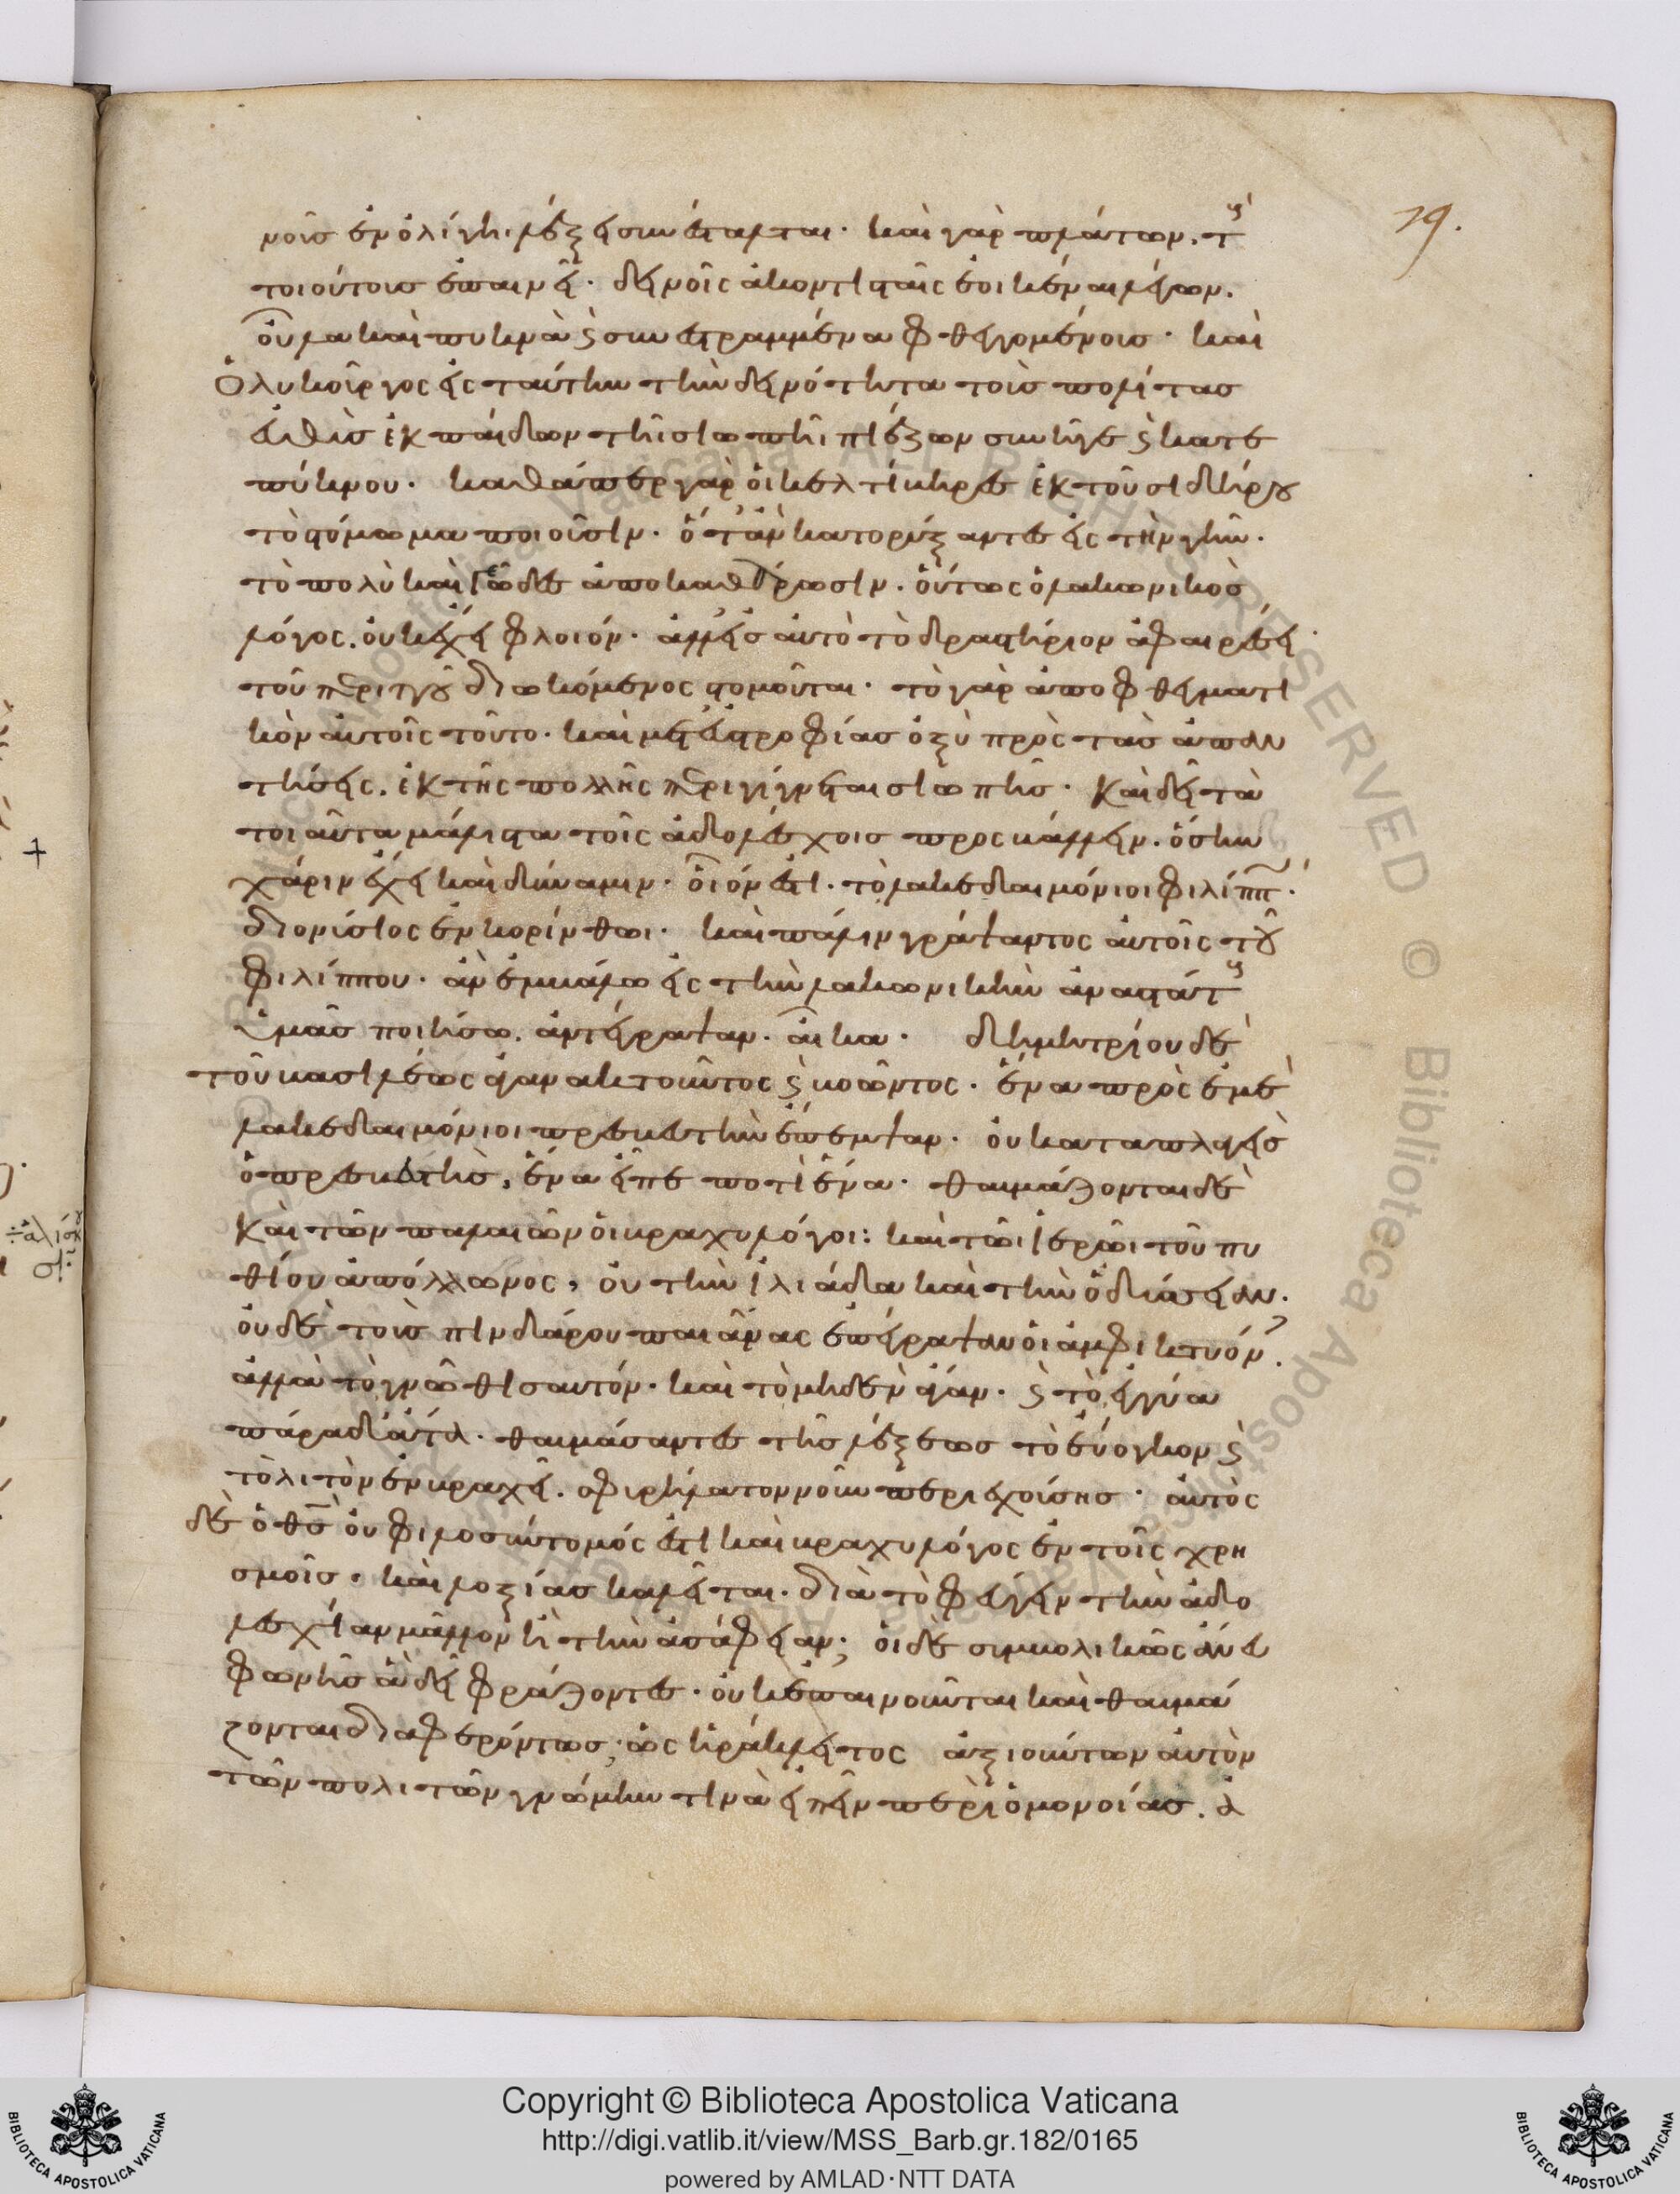 νοῦς ἐν ὀλίγηι λέξει συνέσταλται· καὶ γὰρ πλάτων. τοὺς
τοιούτους ἐπαινεῖ· δεινοῖς ἀκοντισταῖς ἐοικέναι λέγων.
οὖλα καὶ πυκνὰ ϗ συνεστραμμένα φθεγγομένοις· καὶ
ὁ λυκοῦργος εἰς ταύτην τὴν δεινότητα τοὺς πολίτας
εὐθὺς ἐκ παίδων τῆι σιωπῆι πιέζων συνῆγε ϗ κατε
πύκνου· καθάπερ γὰρ οἱ κελτίκηρες ἐκ τοῦ σιδήρου
τὸ στόμωμα ποιοῦσιν· ὅταν κατορύξαντες εἰς τὴν γῆν.
τὸ πολὺ καὶ γεῶδες ἀποκαθάρωσιν. οὕτως ὁ λακωνικὸς
λόγος. οὐκ ἔχει φλοιόν· ἀλλ' εἰς αὐτὸ τὸ δραστήριον ἀφαιρέσει
τοῦ περιττοῦ διωκόμενος στομοῦται· τὸ γὰρ ἀποφθεγματι
κὸν αὐτοῖς τοῦτο· καὶ μετ' εὐστροφίας ὀξὺ πρὸς τὰς ἀπαν
τήσεις. ἐκ τῆς πολλῆς περιγίγνεται σιωπῆς· καὶ δεῖ τὰ
τοιαῦτα μάλιστα τοῖς ἀδολέσχοις προβάλλειν. ὅσην
χάριν ἔχει καὶ δύναμιν· οἷόν ἐστι. τὸ λακεδαιμόνιοι φιλίππ·
διονύσιος ἐν κορίνθωι· καὶ πάλιν γράψαντος αὐτοῖς τοῦ
φιλίππου· ἂν ἐμβάλω εἰς τὴν λακωνικὴν ἀναστάτους
ὑμᾶς ποιήσω. ἀντέγραψαν. αἴκα· δημητρίου δὲ
τοῦ βασιλέως ἀγανακτοῦντος ϗ βοῶντος· ἕνα πρὸς ἐμὲ
λακεδαιμόνιοι πρεσβευτὴν ἔπεμψαν· οὐ καταπλαγεὶς
ὁ πρεσβευτὴς, ἕνα εἶπε ποτὶ ἕνα· θαυμάζονται δὲ
καὶ τῶν παλαιῶν οἱ βραχυλόγοι: καὶ τῶι ἱερῶι τοῦ πυ
θίου ἀπόλλωνος, οὐ τὴν ἰλιάδα καὶ τὴν ὀδύσσειαν.
οὐδὲ τοὺς πινδάρου παιᾶνας ἐπέγραψαν οἱ ἀμφικτυόν.
ἀλλὰ τὸ γνῶθι σαυτόν· καὶ τὸ μηδὲν ἄγαν· ϗ τὸ ἐγγύα
πάρα δ' ἄτα· θαυμάσαντες τῆς λέξεως τὸ εὔογκον ϗ
τὸ λιτὸν ἐν βραχεῖ. σφιρήλατον νοῦν περιεχούσης· αὐτὸς
δὲ ὁ θς̄ οὐ φιλοσύντομός ἐστι καὶ βραχυλόγος ἐν τοῖς χρη
σμοῖς· καὶ λοξίας καλεῖται· διὰ τὸ φεύγειν τὴν ἀδο
λεσχίαν μᾶλλον ἢ τὴν ἀσάφειαν; οἱ δὲ συμβολικῶς ἄνευ
φωνῆς ἃ δεῖ φράζοντες· οὐκ ἐπαινοῦνται καὶ θαυμά
ζονται διαφερόντως; ὡς ἡράκλειτος ἀξιούντων αὐτὸν
τῶν πολιτῶν γνώμην τινὰ εἰπεῖν περὶ ὁμονοίας. ἀ